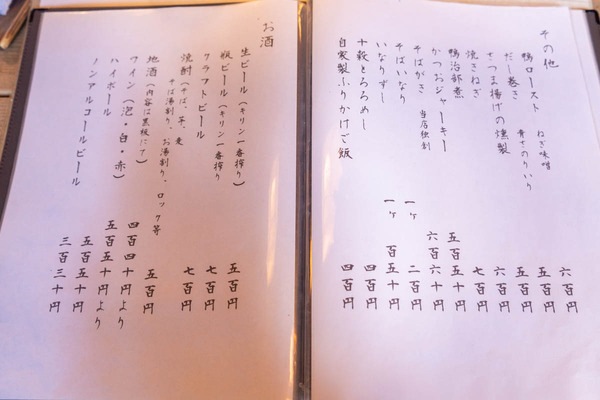 その他
鴨ロースト ねぎ味噌 六百円
だし巻き 青さのりいり 五百円
さつま揚げの燻製 五百円
焼きねぎ 六百円
鴨治部煮 七百円
かつおジャーキー 五百五十円
そばがき 当店独創 六百六十円
そばいなり 一ヶ 二百円
いなりずし 一ヶ 百五十円
十穀とろろめし 四百円
自家製ふりかけご飯 四百円
お酒
生ビール(キリン一番搾り) 五百円
瓶ビール(キリン一番搾り) 七百円
クラフトビール 七百円
焼酎(そば、芋、麦
そば湯割り、お湯割り、ロック等 五百円
地酒(内容は黒板にて) 四百四十円より
ワイン(泡・白・赤) 五百五十円より
ハイボール 五百五十円
ノンアルコールビール 三百三十円